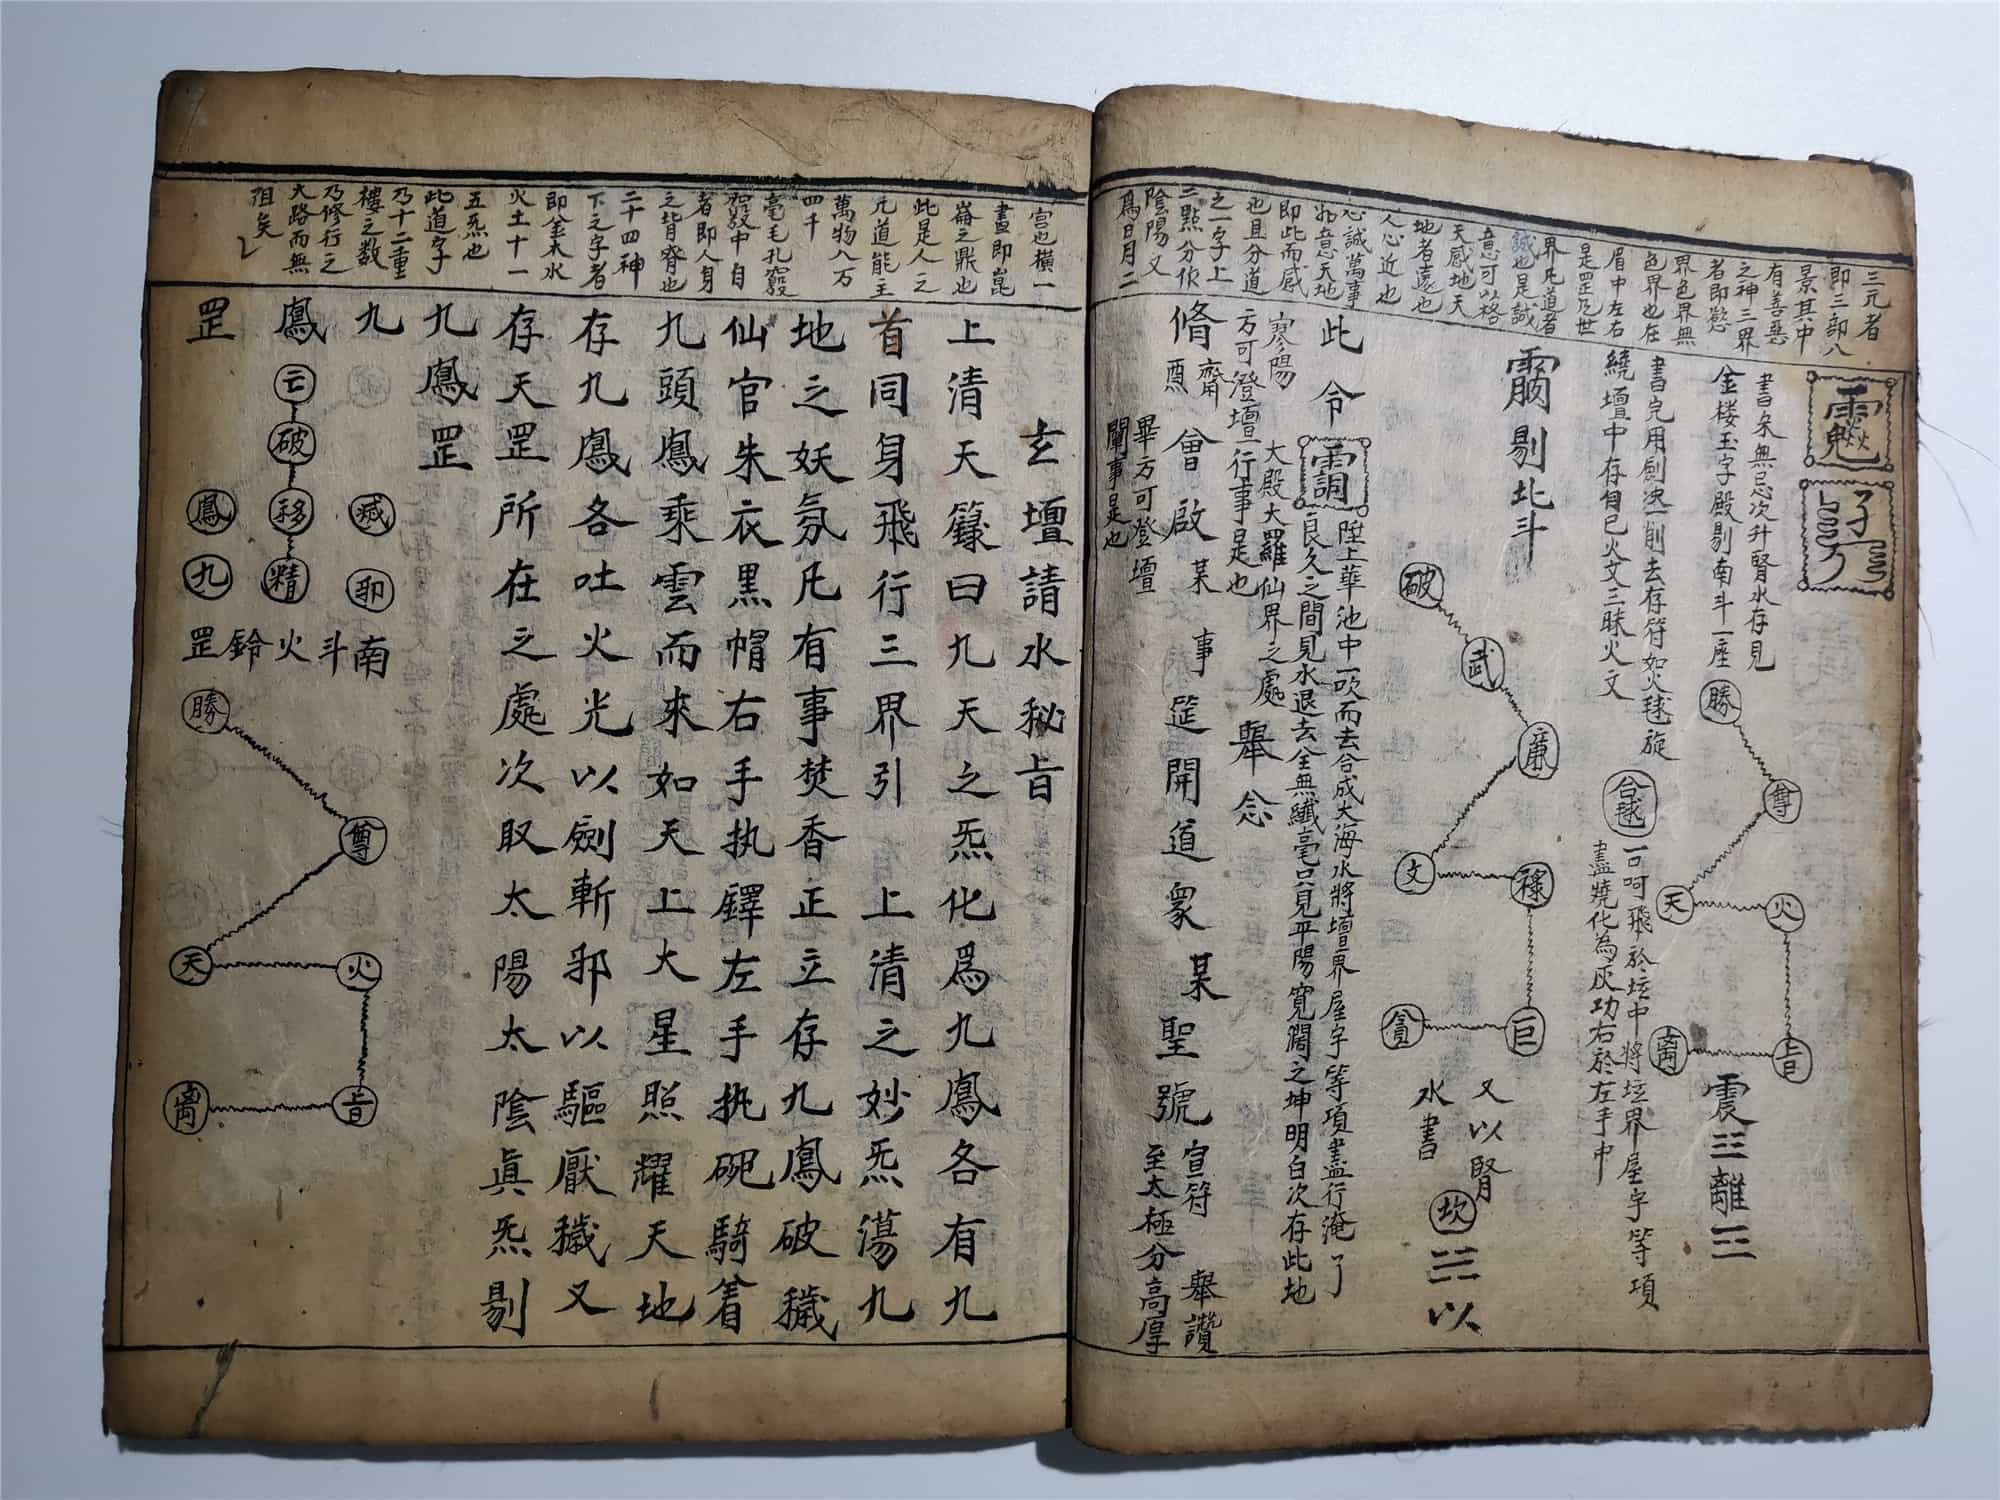 三元者
即三部八
景其中
有善惡
之神三界
者即慾
界色界無
色界也在
眉中左右
是罡乃世
界凡道者
誠也是誠
意可以格
天感地天
地者遠也
人心近也
心誠萬事
如意天地
即此而感
也且分道
之一字上
二點分作
陰陽又
爲日月二
書朵無忌次升腎水存見
金楼玉字殿剔南斗一座
勝
尊
天
火
震☳離☲
書完用劍決一削去存符如火毬旋
繞壇中存自己火文三昧火文
一口呵飛於坛中將坛界屋宇等項
盡燒化為灰功右於左手中
剔北斗
破
武
廉
文
祿
巨
貪
又以腎
水書
坎
☵以
此令
陞上華池中一吹而去合成大海水將壇界屋宇等項盡行淹了
良久之間見水退去全無纖毫只見平陽寬濶之坤明白次存此地
寒陽
大殿大羅仙界之處
舉念
方可澄壇行事是也
脩齋
會啟某事筵開道衆某聖號
宣符
舉讚
至太極分高厚
畢方可登壇
闡事是也
宮也横一
畫即崑
崙之鼎也
此是人之
元道能主
萬物八万
四千
毫毛孔竅
中自
者即人身
之背脊也
二十四神
下之字者
即金木水
火土十一
五炁也
此道字
乃十二重
樓之數
乃修行之
大路而無
阻矣
玄壇請水秘旨
上清天籙曰九天之炁化爲九鳳各有九
首同身飛行三界引上清之妙炁蕩九
地之妖氛凡有事焚香正立存九鳳破穢
仙官朱衣黑帽右手执鐸左手执碗騎着
九頭鳳乘雲而來如天上大星照耀天地
存九鳳各吐火光以劍斬邪以驅厭穢又
存天罡所在之處次取太陽太陰真炁剔
九鳳罡
九
鳳
罡
云
破
移
精
鳳
九
南斗火鈴罡
勝
尊
天
火